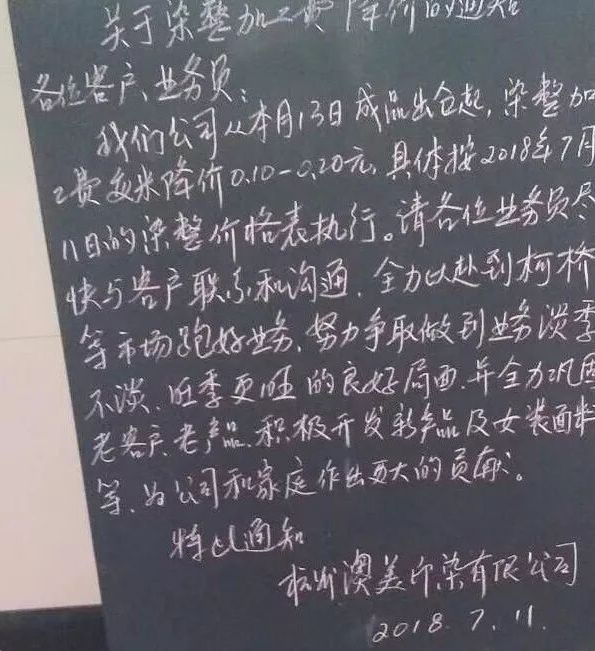 关于染整加工费降价的通知
各位客户、业务员：
我们公司从本月13日成品出仓起，染整加
工费每米降价0.10-0.20元，具体按2018年7月
11日的染整价格表执行。请各位业务员尽
快与客户联系和沟通，全力以赴到柯桥
等市场跑好业务，努力争取做到业务淡季
不淡、旺季更旺的良好局面，并全力巩固
老客户、老产品，积极开发新产品及女装面料
等，为公司和家庭作出更大的贡献。
特此通知
杭州澳美印染有限公司
2018.7.11.